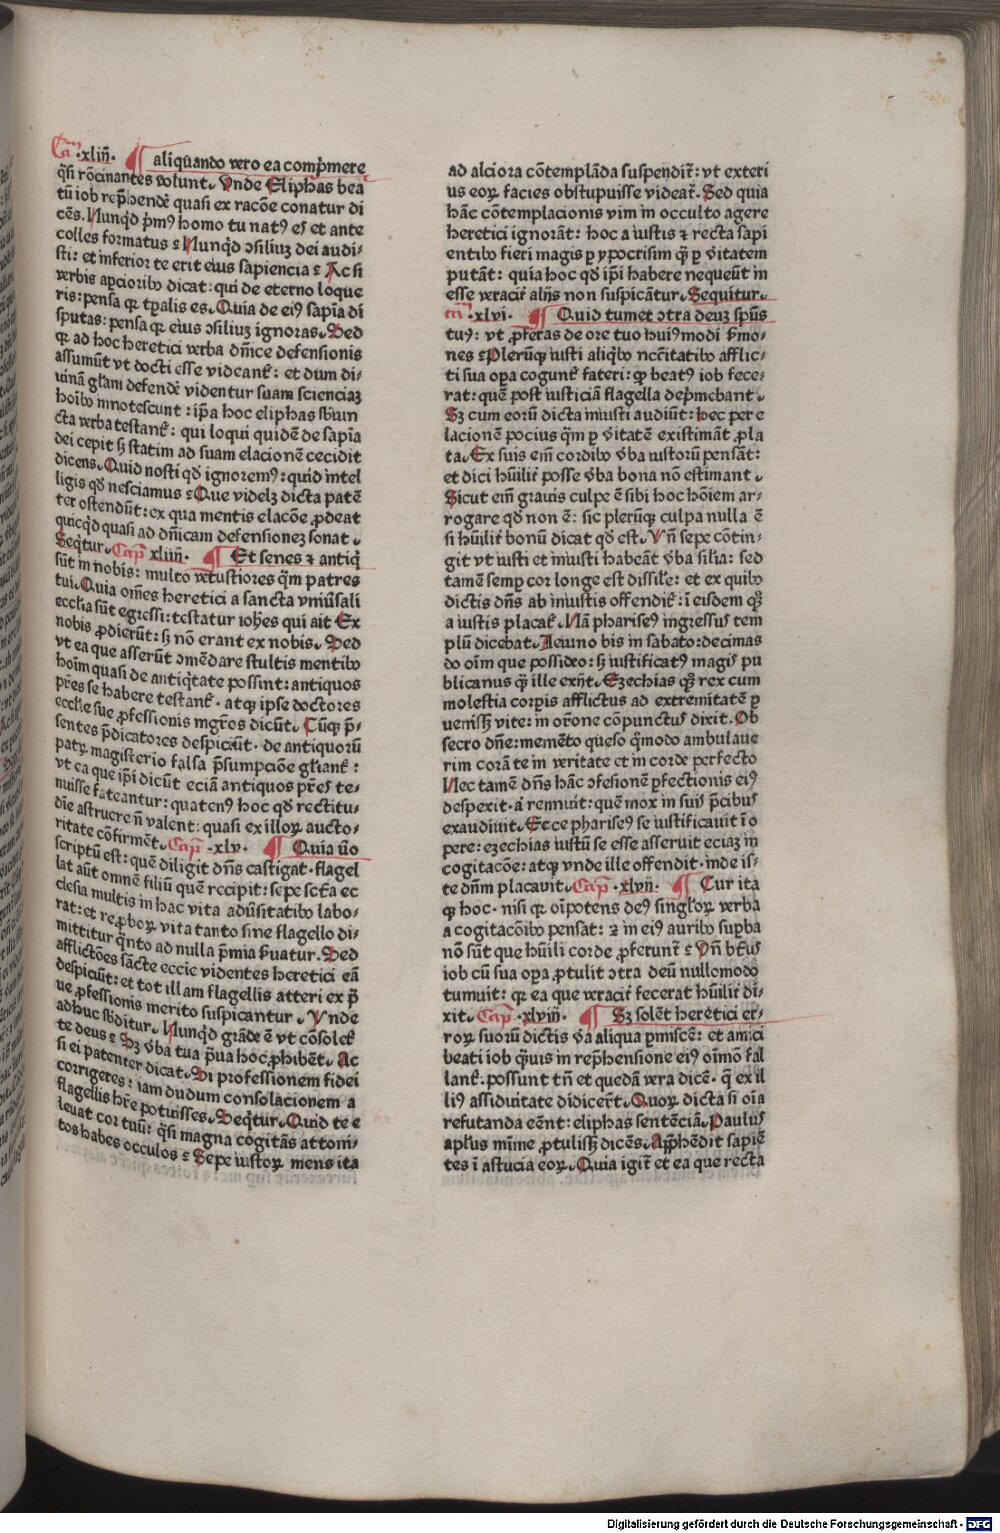 Cam ·xliii· ¶ aliquando vero ea comp̃mere
q̃si rõcinantes volunt. Vnde Eliphas bea
tũ iob rep̃hendẽ quasi ex racõe conatur di
cẽs. Nunqd p̃mꝰ homo tu natꝰ es et ante
colles formatus ⁊ Nunqd ↄsiliuʒ dei audi-
sti: et inferior te erit eius sapiencia ⁊ Ac si
verbis apcioribꝰ dicat: qui de eterno loque
ris: pensa qꝛ tp̃alis es. Quia de eiꝰ sapĩa di
sputas: pensa qꝛ eius ↄsiliuʒ ignoras. Sed
qꝛ ad hoc heretici verba dm̃ce defensionis
assumũt vt docti esse videant̃: et dum di-
uinã glãm defendẽ videntur suam scienciaʒ
hoĩbꝰ innotescunt: ip̃a hoc eliphas sb̃iun
cta verba testant̃: qui loqui quidẽ de sapĩa
dei cepit sʒ statim ad suam elacionẽ cecidit
dicens. Quid nosti qd̃ ignoremꝰ: quid intel
ligis qd̃ nesciamus ⁊ Que videlʒ dicta patẽ
ter ostendũt: ex qua mentis elacõe ꝓdeat
quicqd quasi ad dñicam defensioneʒ sonat.
Seqtur. Cap̃ xliiii. ¶ Et senes ⁊ antiq
sũt in nobis: multo vetustiores q̃m patres
tui. Quia oẽs heretici a sancta vniũsali
ecclia sũt egressi: testatur ioh̃es qui ait Ex
nobis ꝓdierũt: sʒ nõ erant ex nobis. Sed
vt ea que asserũt ↄmẽdare stultis mentibꝰ
hoĩm quasi de antiqtate possint: antiquos
p̃res se habere testant̃. atqꝫ ipse doctores
ecclie sue ꝓfessionis mgr̃os dicũt. Cũqꝫ p̃-
sentes p̃dicatores despiciũt. de antiquorũ
patꝝ magisterio falsa p̃sumpciõe gl̃iant̃:
vt ea que ip̃i dicũt eciã antiquos p̃res te-
nuisse fateantur: quatenꝰ hoc qd̃ rectitu-
dĩe astruere ñ valent: quasi ex illoꝝ aucto-
ritate cõfirmẽt. Cap̃ ·xlv· ¶ Quia ũo
scriptũ est: quẽ diligit dñs castigat. flagel
lat aũt omnẽ filiũ quẽ recipit: sepe scṫa ec
clesia multis in hac vita adũsitatibꝰ labo-
rat: et reꝓboꝝ vita tanto sine flagello di-
mittitur q̃nto ad nulla p̃mia ẛuatur. Sed
afflictões sãcte ecc̃ie videntes heretici eã
despiciũt: et tot illam flagellis atteri ex p̃
ue ꝓfessionis merito suspicantur. Vnde
adhuc sb̃ditur. Nunqd grãde ẽ vt cõsolet̃
te deus ⁊ Sʒ v̇ba tua p̃ua hoc ꝓhibẽt. Ac
si ei patenter dicat. Si professionem fidei
corrigeres: iam dudum consolacionem a
flagellis hr̃e potuisses. Seqtur. Quid te e
leuat cor tuũ: q̃si magna cogitãs attoni-
tos habes occulos ⁊ Sepe iustoꝝ mens ita
ad alciora cõtemplãda suspendit̃: vt exteri
us eoꝝ facies obstupuisse videat̃. Sed quia
hãc cõtemplacionis vim in occulto agere
heretici ignorãt: hoc a iustis ⁊ recta sapi
entibꝰ fieri magis ꝑ ypocrisim q̃ ꝑ v̇itatem
putãt: quia hoc qd̃ ip̃i habere nequeũt in
esse veracit̃ alijs non suspicãtur. Sequitur.
ca ·xlvi· ¶ Quid tumet ↄtra deuʒ sp̃us
tuꝰ: vt ꝓferas de ore tuo huiꝰmodi ẛmo-
nes ⁊ Plerũqꝫ iusti aliqbꝰ nc̃citatibꝰ afflic-
ti sua oꝑa cogunt̃ fateri: qꝫ beatꝰ iob fece-
rat: quẽ post iusticiã flagella dep̃mebant.
Sʒ cum eorũ dicta iniusti audiũt: hec per e
lacionẽ pocius q̃m ꝑ v̇itatẽ existimãt ꝓla
ta. Ex suis em̃ cordibꝰ v̇ba iustorũ pensãt:
et dici hũilit̃ posse v̇ba bona nõ estimant.
Sicut em̃ grauis culpe ẽ sibi hoc hõiem ar-
rogare qd̃ non ẽ: sic plerũqꝫ culpa nulla ẽ
si hũilit̃ bonũ dicat qd̃ est. Vñ sepe cõtin-
git vt iusti et iniusti habeãt v̇ba sil̃ia: sed
tamẽ semꝑ cor longe est dissil̃e: et ex quibꝰ
dictis dñs ab iniustis offendit̃: ĩ eisdem qꝫ
a iustis placat̃. Nã phariseꝰ ingressus tem
plũ dicebat. Ieiuno bis in sabato: decimas
do oĩm que possideo: sʒ iustificatꝰ magis pu
blicanus q̃ ille exijt. Ezechias qꝫ rex cum
molestia corꝑis afflictus ad extremitatẽ ꝑ
uenissʒ vite: in oĩone cõpunctus dixit. Ob
secro dñe: memẽto queso q̃modo ambulaue
rim corã te in veritate et in corde perfecto
Nec tamẽ dñs hãc ↄfesionẽ ꝑfectionis eiꝰ
despexit. aĩ rennuit: quẽ mox in suis p̃cibus
exaudiuit. Ecce phariseꝰ se iustificauit ĩ o
pere: ezechias iustũ se esse asseruit eciaʒ in
cogitacõe: atqꝫ vnde ille offendit. inde is-
te dñm placauit. Cap̃ ·xlvii· ¶ Cur ita
qꝫ hoc. nisi qꝛ oĩpotens deꝰ singl̃oꝝ verba
a cogitacõibꝰ pensat: ⁊ in eiꝰ auribꝰ suꝑba
nõ sũt que hũili corde ꝓferunt̃ ⁊ Vñ bt̃us
iob cũ sua oꝑa ꝓtulit ↄtra deũ nullomodo
tumuit: qꝛ ea que veracit̃ fecerat hũilit̃ di-
xit. Cap̃ ·xlviii· ¶ Sʒ solẽt heretici er-
roꝝ suorũ dictis v̇a aliqua ꝑmiscẽ: et amici
beati iob q̃uis in rep̃hensione eiꝰ oĩmo fal
lant̃: possunt tñ et quedã vera dicẽ. q̃ ex il
liꝰ assiduitate didicer̃t. Quoꝝ dicta si oĩa
refutanda eẽnt: eliphas sentẽciã. Paulus
apl̃us mĩme ꝓtulissʒ dicẽs. App̃hẽdit sapiẽ
tes ĩ astucia eoꝝ. Quia igit̃ et ea que recta
Digitalisierung gefördert durch die Deutsche Forschungsgemeinschaft - DFG